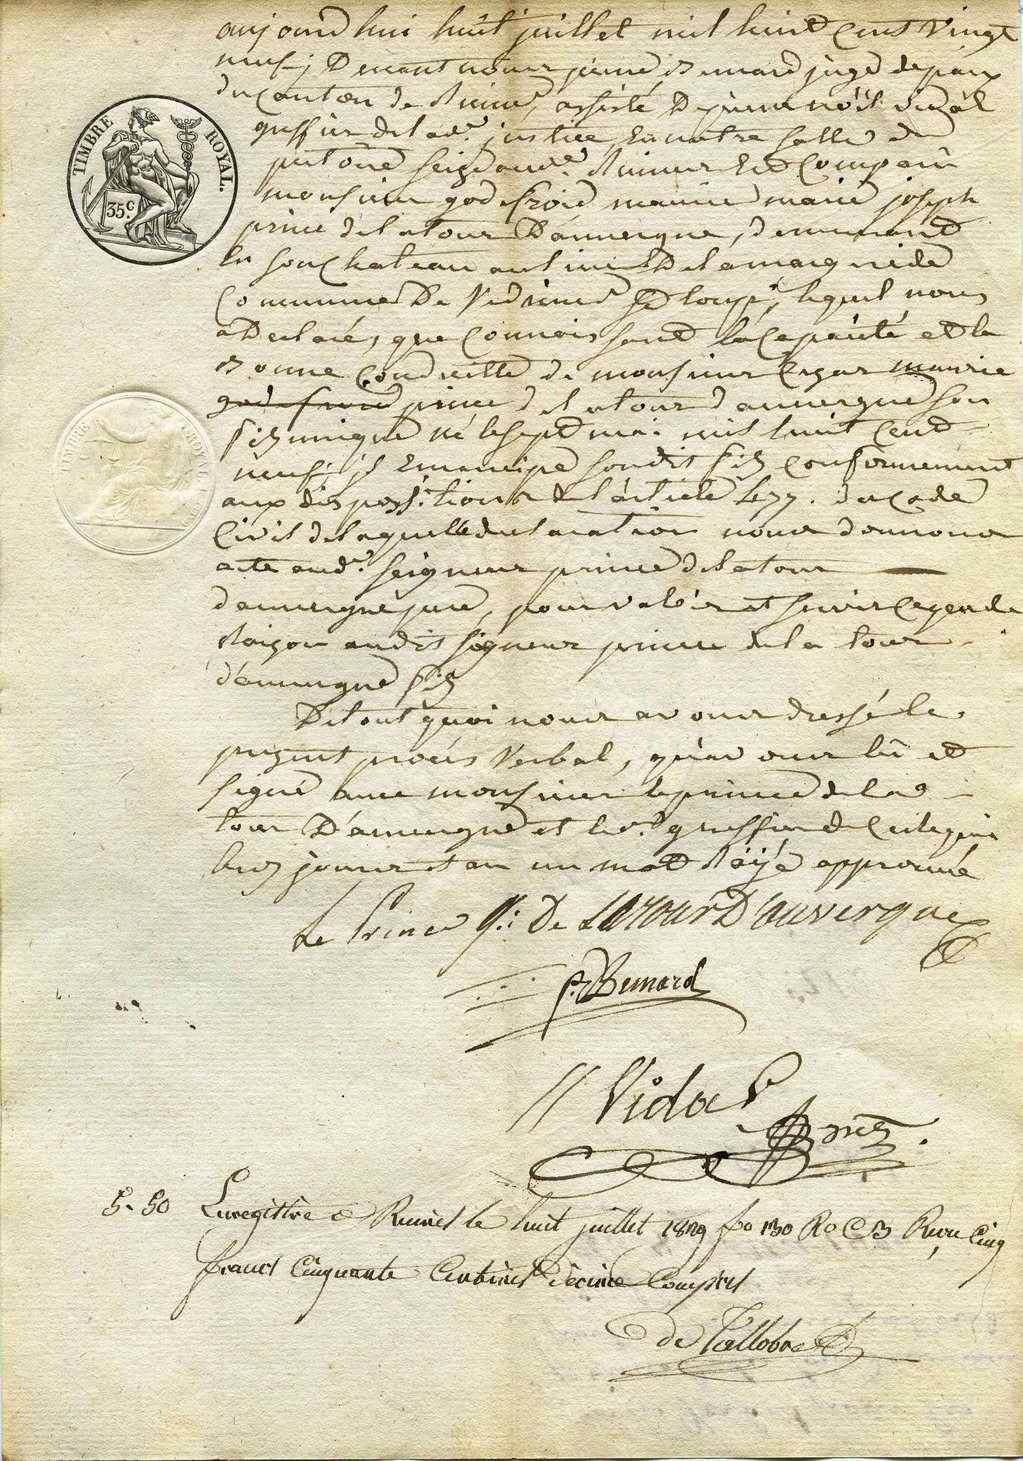 aujourd'hui huit juillet mil huit cens vingt
neuf; Devant nous pierre Bernard juge de paix
du canton de Ruines, assisté De pierre noël vidal
greffier de lad.e justice, En notre salle
seize aud.t Ruines Est Comparu
monsieur godefroid maurice marie joseph
prince de latour D'auvergne, demeurant
En son Chateau au lieu De lamargeride
Commune De Vedrines St loup, lequel nous
a Declaré, que Connoissant la Capacité et la
Bonne Conduitte de monsieur Cezar maurice
godefroid prince de latour d'auvergne son
fils unique né le sept mai mil huit Cent
neuf, il Emancipe son dit fils Conformement
aux dispositions de l'article 477. du Code
Civil de laquelle declaration nous donnons
acte aud.t seigneur prince de latour
d'auvergne pere, pour valoir et servir Ce que de
Raison audit seigneur prince de la tour
d'auvergne fils
De tout quoi nous avons dressé le
prezent procés Verbal, qu'avons lû et
signé avec monsieur le prince de la
tour D'auvergne et led.t greffier
les jour et an un mot Rayé approuvé
Le Prince G: De LaTour D'auvergne
P. Bernard
Vidal
Gref.
5-50 Enregistré a Ruines le huit juillet 1829 fo 130 Ro C 3 Reçu Cinq
francs Cinquante Centimes Décime Compris
de Tallobre
TIMBRE ROYAL.
35.c
TIMBRE ROYAL